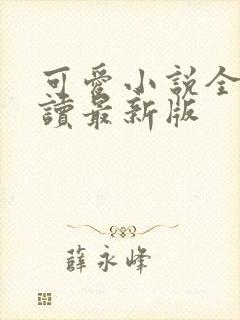 可愛小說全
讀最新版
薛永峰